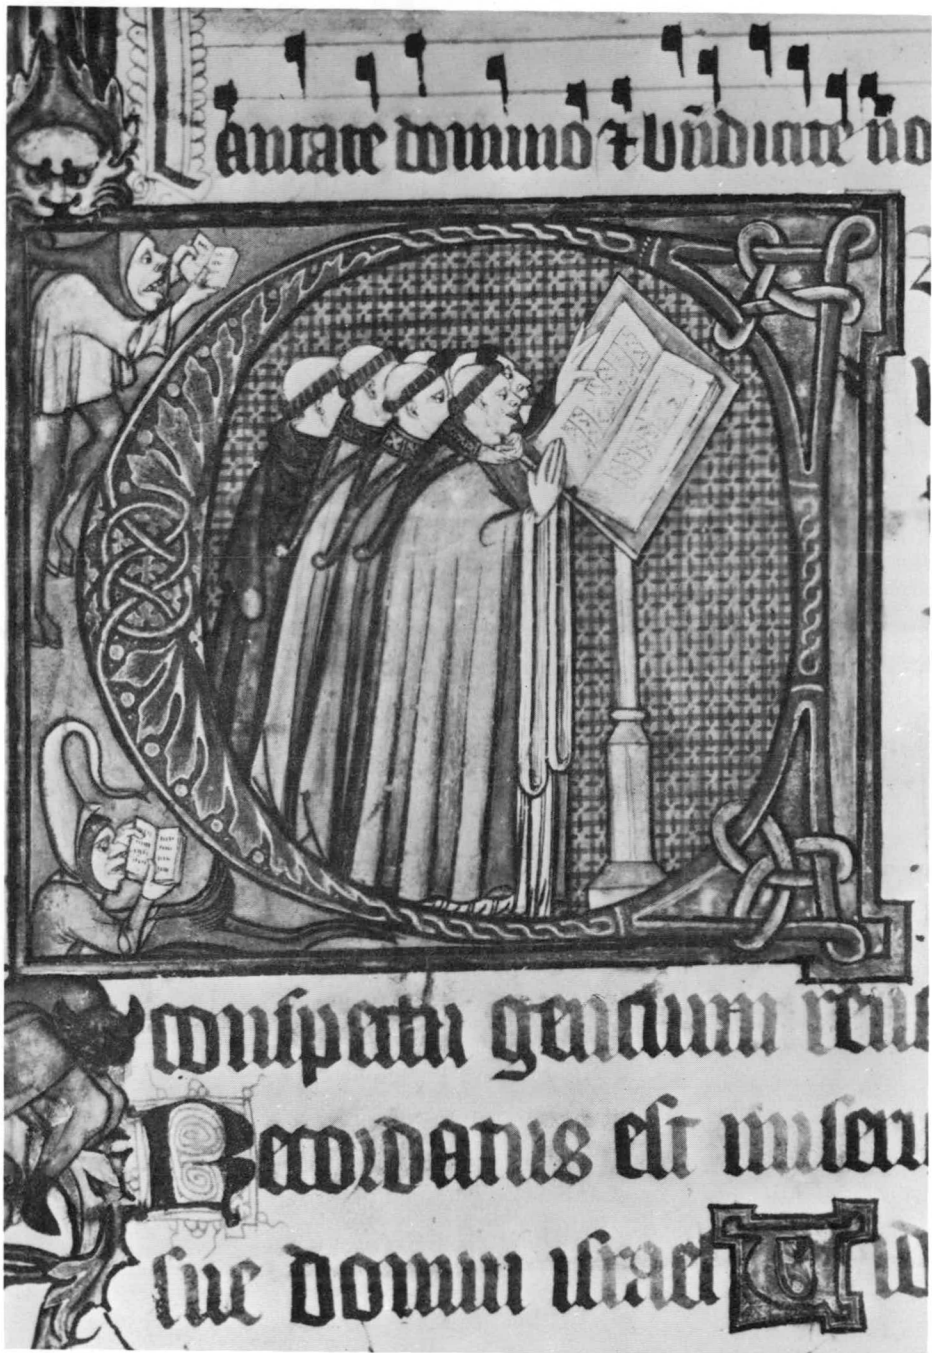 Cantate domino ⁊ bn̄dicite no
conspectu gentium reue
Recordatus est miseri
sue domui israel Vid